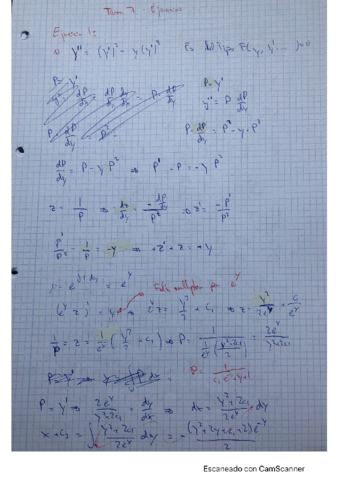 Tema 7 Ejercicios
Ejercicio 1:
a) y'' = (y')² - y(y')³ Es del tipo F(y, y', ...)=0
P = y'
y'' = P dP/dy
P · dP/dy = P² - y · P³
dP/dy = P - y P² ⇒ P' - P = -y P²
z = 1/P ⇒ dz/dy = -(dP/dy)/P² ⇒ z' = -P'/P²
P'/P² - 1/P = -y ⇒ +z' + z = +y
μ = e^∫1dy = e^y
Falta multiplicar por e^y
(e^y z)' = y ⇒ e^y z = y²/2 + C₁ ⇒ z = y²/2e^y + C/e^y
1/P = z = 1/e^y (y²/2 + C₁) ⇒ P = 1/(1/e^y ((y²+2C₁)/2)) = 2e^y/(y²+2C₁)
P = y' ⇒ 2e^y/(y²+2C₁) = dy/dx ⇒ dx = (y²+2C₁)/2e^y · dy
x + C₂ = ∫ (y²+2C₁)/2e^y dy = -((y²+2y+C₁+2)e^-y)/2
Escaneado con CamScanner